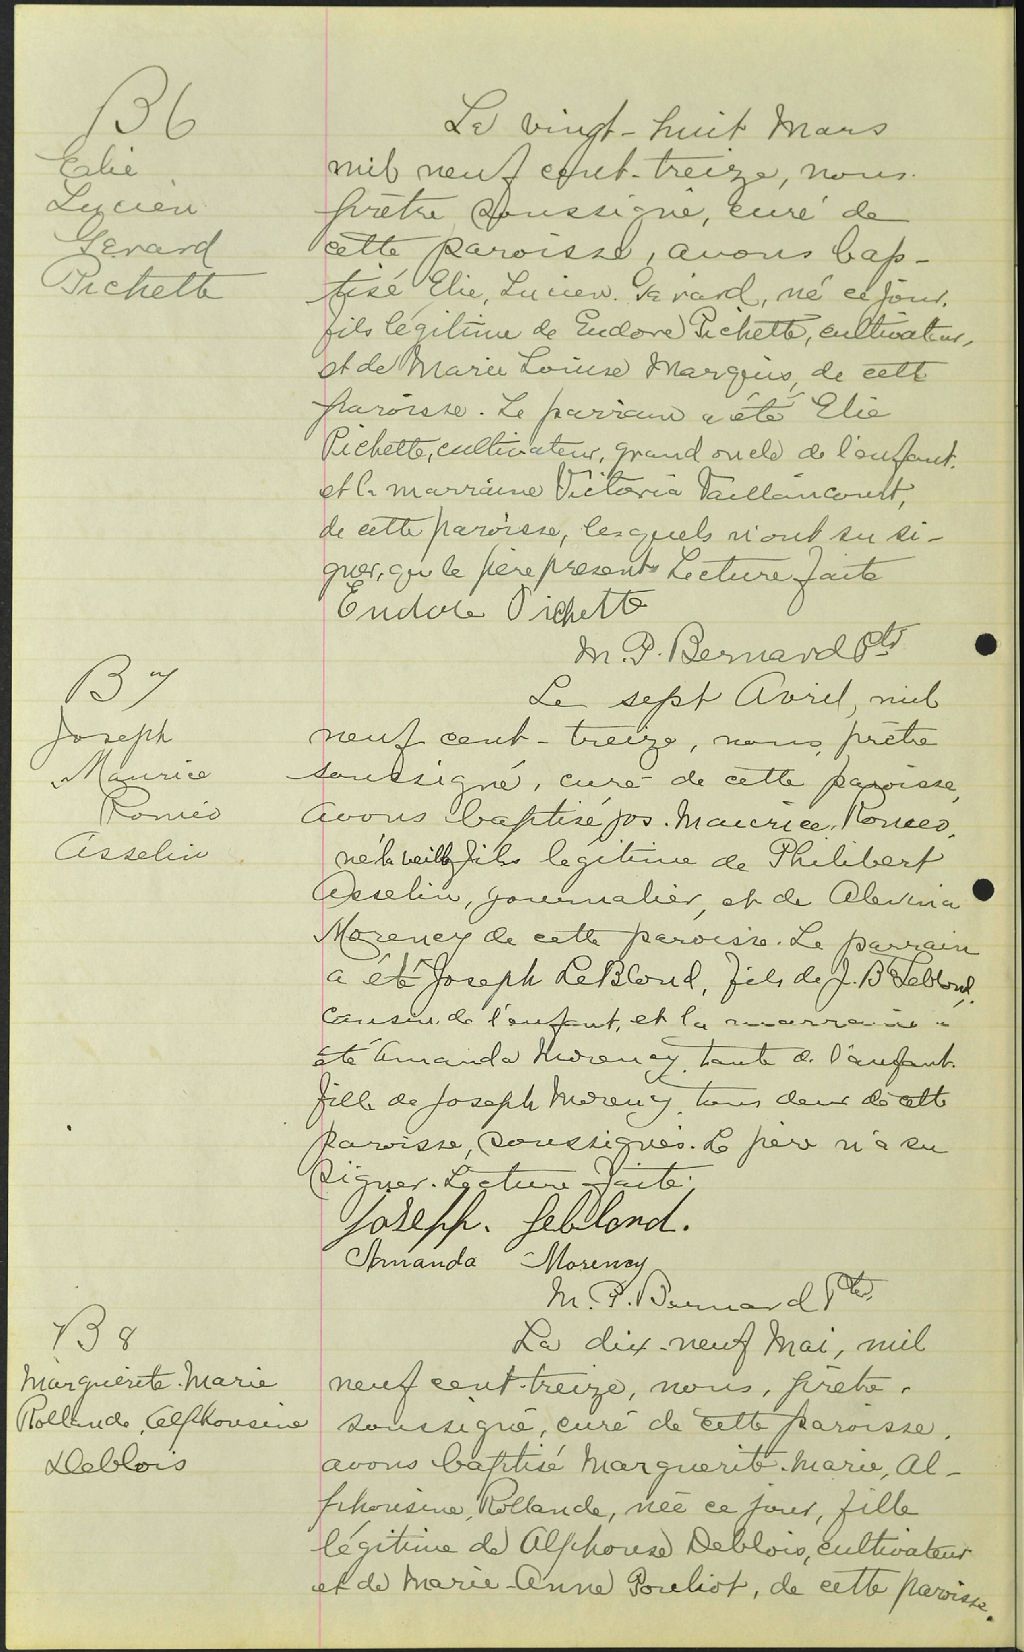 B 6
Elie
Lucien
Gerard
Pichette
Le vingt-huit Mars
mil neuf cent-treize, nous
prêtre soussigné, curé de
cette paroisse, avons bap-
tisé Elie, Lucien Gerard, né ce jour,
fils légitime de Eudore Pichette, cultivateur,
et de Marie Louise Marquis, de cette
paroisse. Le parrain a été Elie
Pichette, cultivateur, grand oncle de l'enfant,
et la marraine Victoria Vaillancourt,
de cette paroisse, lesquels n'ont su si-
gner, que le père present. Lecture faite
Eudore Pichette
M. P. Bernard Ptre
B 7
Joseph
Maurice
Roméo
Asselin
Le sept Avril, mil
neuf cent-treize, nous, prêtre
soussigné, curé de cette paroisse,
avons baptisé Jos. Maurice, Romeo,
né la veille, fils legitime de Philibert
Asselin, journalier, et de
Morency de cette paroisse. Le parrain
a été Joseph LeBlond, fils de J. Bte Leblond,
cousin de l'enfant, et la marraine a
été Amanda Morency, tante de l'enfant
fille de Joseph Morency, tous deux de cette
paroisse, soussignés. Le père n'a su
signer. Lecture faite.
Joseph. Leblond.
Amanda Morency
M. P. Bernard Ptre
B 8
Marguerite-Marie
Rollande, Alphonsine
Deblois
Le dix-neuf Mai, mil
neuf cent-treize, nous, prêtre,
soussigné, curé de cette paroisse,
avons baptisé Marguerite-Marie, Al-
phonsine, Rollande, née ce jour, fille
légitime de Alphonse Deblois, cultivateur
et de Marie-Anne Pouliot, de cette paroisse.